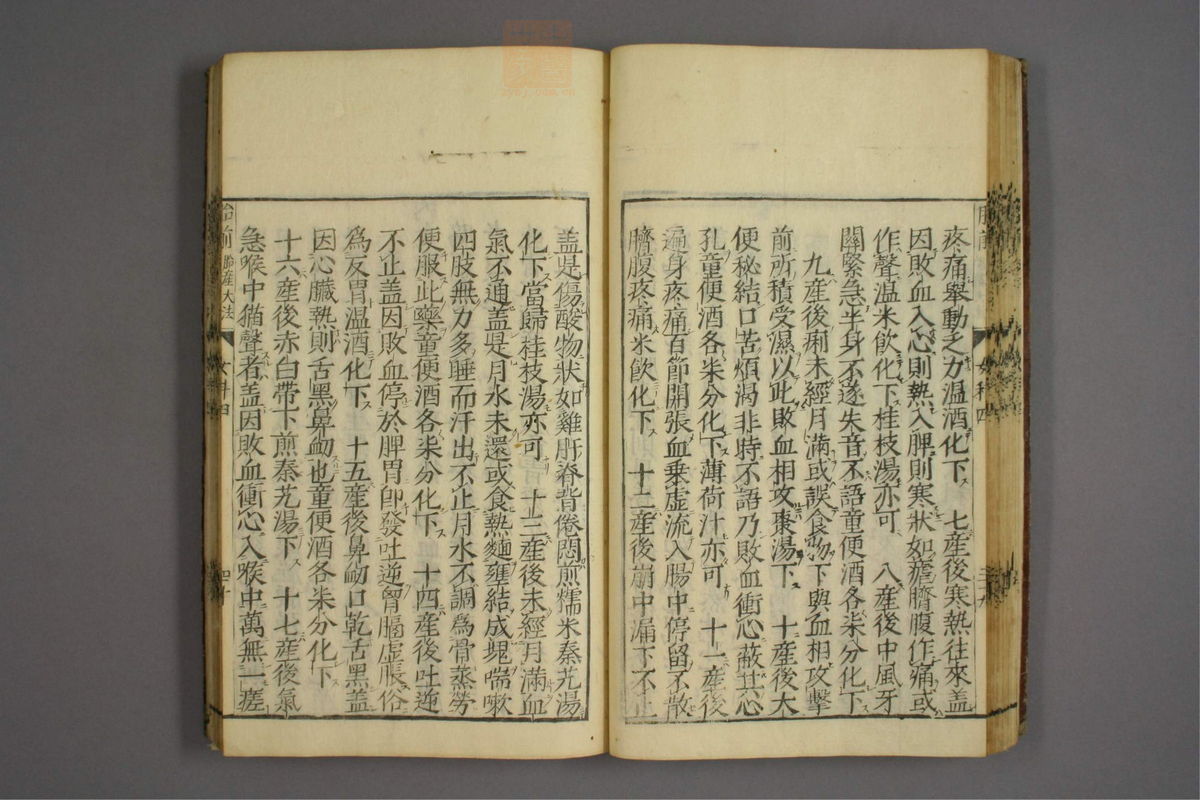 疼痛舉動乏力溫酒化下　七產後寒熱徃來盖
因敗血入心則熱入脾則寒狀如瘧臍腹作痛或
作聲温米飲化下桂枝湯亦可　八產後中風牙
關緊急半身不遂失音不語童便酒各柒分化下
九產後痢未經月滿或誤食物下與血相攻擊
前所積受濕以此敗血相攻棗湯下　十產後大
便秘結口苦煩渴非時不語乃敗血衝心蔽其心
孔童便酒各柒分化下薄荷汁亦可　十一產後
遍身疼痛百節開張血乗虚流入腸中停留不散
臍腹疼痛米飲化下　十二產後崩中漏下不止
盖是傷酸物狀如雞肝脊背倦悶煎糯米秦艽湯
化下當歸桂枝湯亦可　十三產後未經月滿血
氣不通盖是月水未還或食熱麵壅結成塊喘嗽
四肢無力多睡而汗出不止月水不調爲骨蒸勞
便服此藥童便酒各柒分化下　十四產後吐逆
不止盖因敗血停於脾胃卽發吐逆胷膈虚脹俗
爲反胃温酒化下　十五產後鼻衂口乾舌黑盖
因心臟熱則舌黑鼻衂也童便酒各柒分化下
十六產後赤白帶下煎秦艽湯下　十七產後氣
急喉中猫聲者盖因敗血衝心入喉中萬無一瘥
胎前　臨產大法　女科四　四十